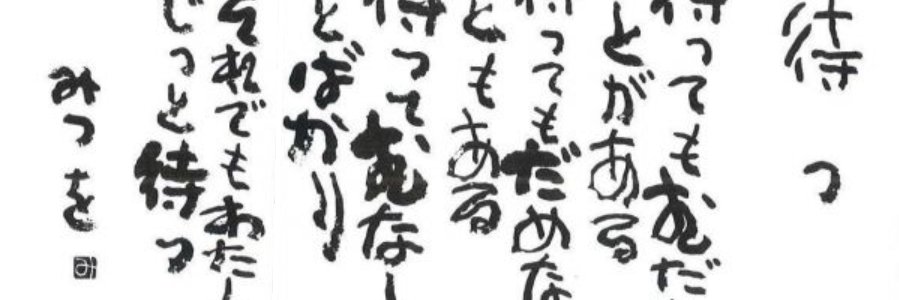 待つ
待ってもむだ
とがある
待ってもだめな
ともある
待って、むなし
とばかり
それでもわたし
じっと待つ
みつを
み